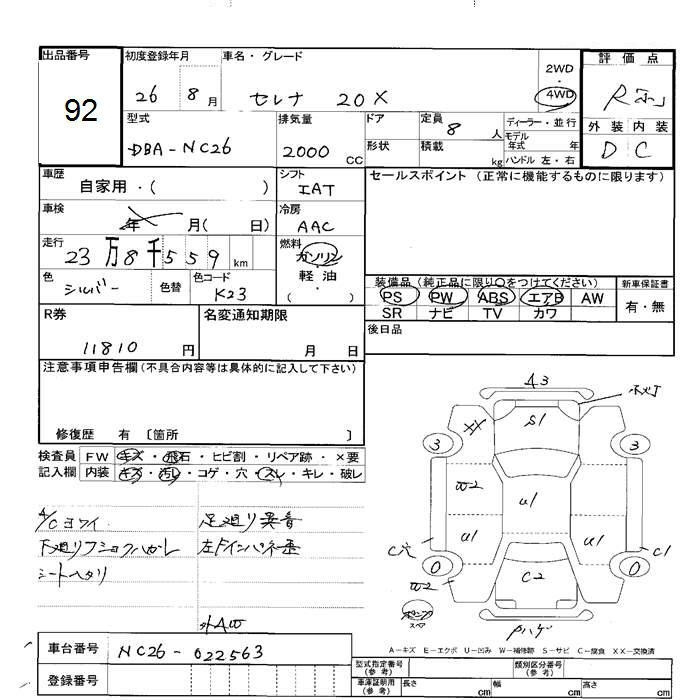 出品番号
92
初度登録年月
26 8 月
車名・グレード
セレナ 20X
2WD
・
4WD
評価点
R
外装 内装
D C
型式
DBA-NC26
排気量
2000 CC
ドア
形状
定員
8 人
積載
kg
ディーラー・並行
モデル
年式 年
ハンドル 左・右
車歴
自家用・( )
シフト
IAT
セールスポイント (正常に機能するものに限ります)
車検
年 月( 日)
冷房
AAC
走行
23万8千559 km
燃料
ガソリン
・
軽油
・
( )
色
シルバー
色替
色コード
K23
装備品(純正品に限り○をつけてください)
PS PW ABS エアB AW
SR ナビ TV カワ
新車保証書
有・無
後日品
R券
11810 円
名変通知期限
月 日
注意事項申告欄(不具合内容等は具体的に記入して下さい)
修復歴 有 〔箇所 〕
検査員
記入欄
FW キズ・飛石・ヒビ割・リペア跡・×要
内装 キズ・汚レ・コゲ・穴・スレ・キレ・破レ
A/Cヨワイ
足廻り異音
下廻りフショクハガレ
左Fインパネ歪
シートヘタリ
外AW
A3
S1
3
3
W2
U1
U1
U1
C穴
C1
0
0
C2
W2
スペア
Pハゲ
車台番号
NC26-022563
登録番号
A-キズ E-エクボ U-凹み W-補修跡 S-サビ C-腐食 XX-交換済
型式指定番号
(参考)
類別区分番号
(参考)
車庫証明用
(参考)
長さ cm
幅 cm
高さ cm